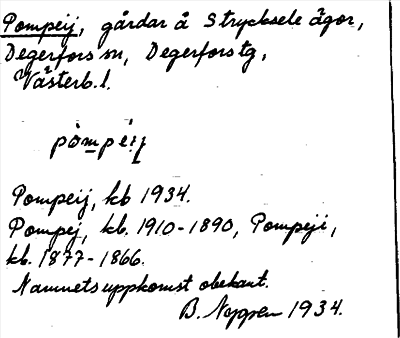 Pompeij, gårdar å Strycksele ägor,
Degerfors sn, Degerfors tg,
Västerb. l.
pòmpéij
Pompeij, kb 1934.
Pompej, kb. 1910-1890, Pompeji,
kb. 1877-1866.
Namnets uppkomst obekant.
B. Nygren 1934.